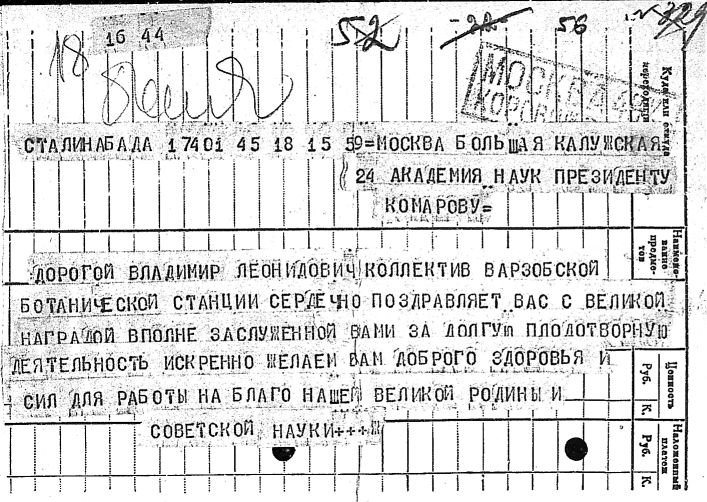 № 329
18
16 44
52
22
56
МОСКВА
Куда или откуда
СТАЛИНАБАДА 17401 45 18 15 59=МОСКВА БОЛЬШАЯ КАЛУЖСКАЯ
24 АКАДЕМИЯ НАУК ПРЕЗИДЕНТУ
КОМАРОВУ=
Наимено-
вание
предме-
тов
ДОРОГОЙ ВЛАДИМИР ЛЕОНИДОВИЧ КОЛЛЕКТИВ ВАРЗОБСКОЙ
БОТАНИЧЕСКОЙ СТАНЦИИ СЕРДЕЧНО ПОЗДРАВЛЯЕТ ВАС С ВЕЛИКОЙ
НАГРАДОЙ ВПОЛНЕ ЗАСЛУЖЕННОЙ ВАМИ ЗА ДОЛГУЮ ПЛОДОТВОРНУЮ
ДЕЯТЕЛЬНОСТЬ ИСКРЕННО ЖЕЛАЕМ ВАМ ДОБРОГО ЗДОРОВЬЯ И
СИЛ ДЛЯ РАБОТЫ НА БЛАГО НАШЕЙ ВЕЛИКОЙ РОДИНЫ И
СОВЕТСКОЙ НАУКИ+++Ж
Ценность
Руб.
К.
Наложенный
платеж
Руб.
К.